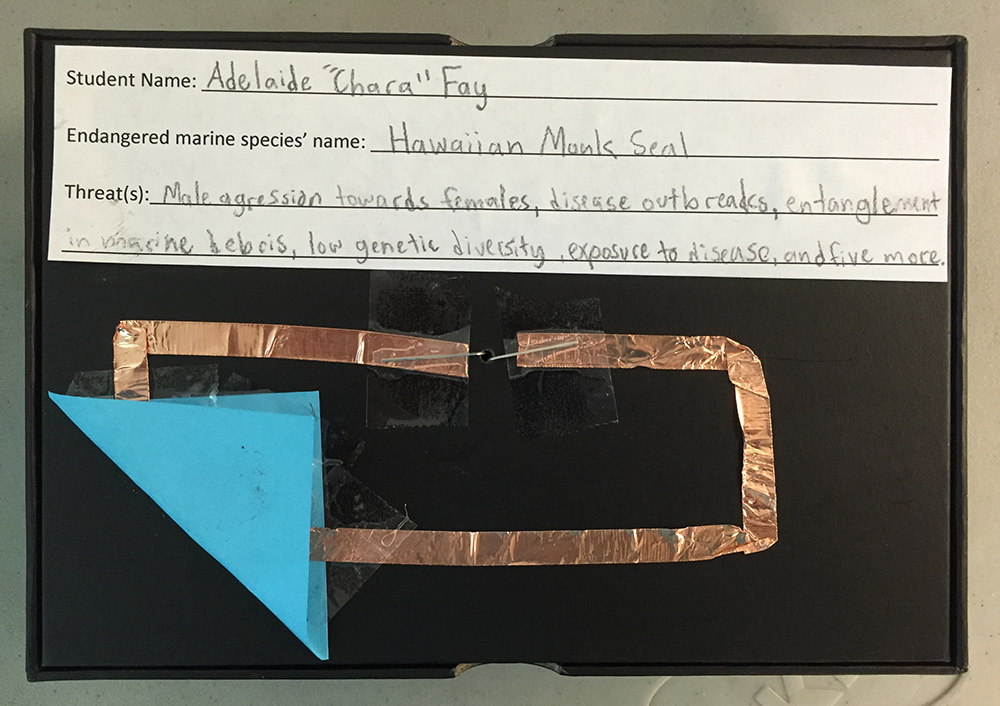 Student Name: Adelaide "Chara" Fay
Endangered marine species' name: Hawaiian Monk Seal
Threat(s): Male agression towards females, disease outbreaks, entanglement
in marine debris, low genetic diversity, exposure to disease, and five more.